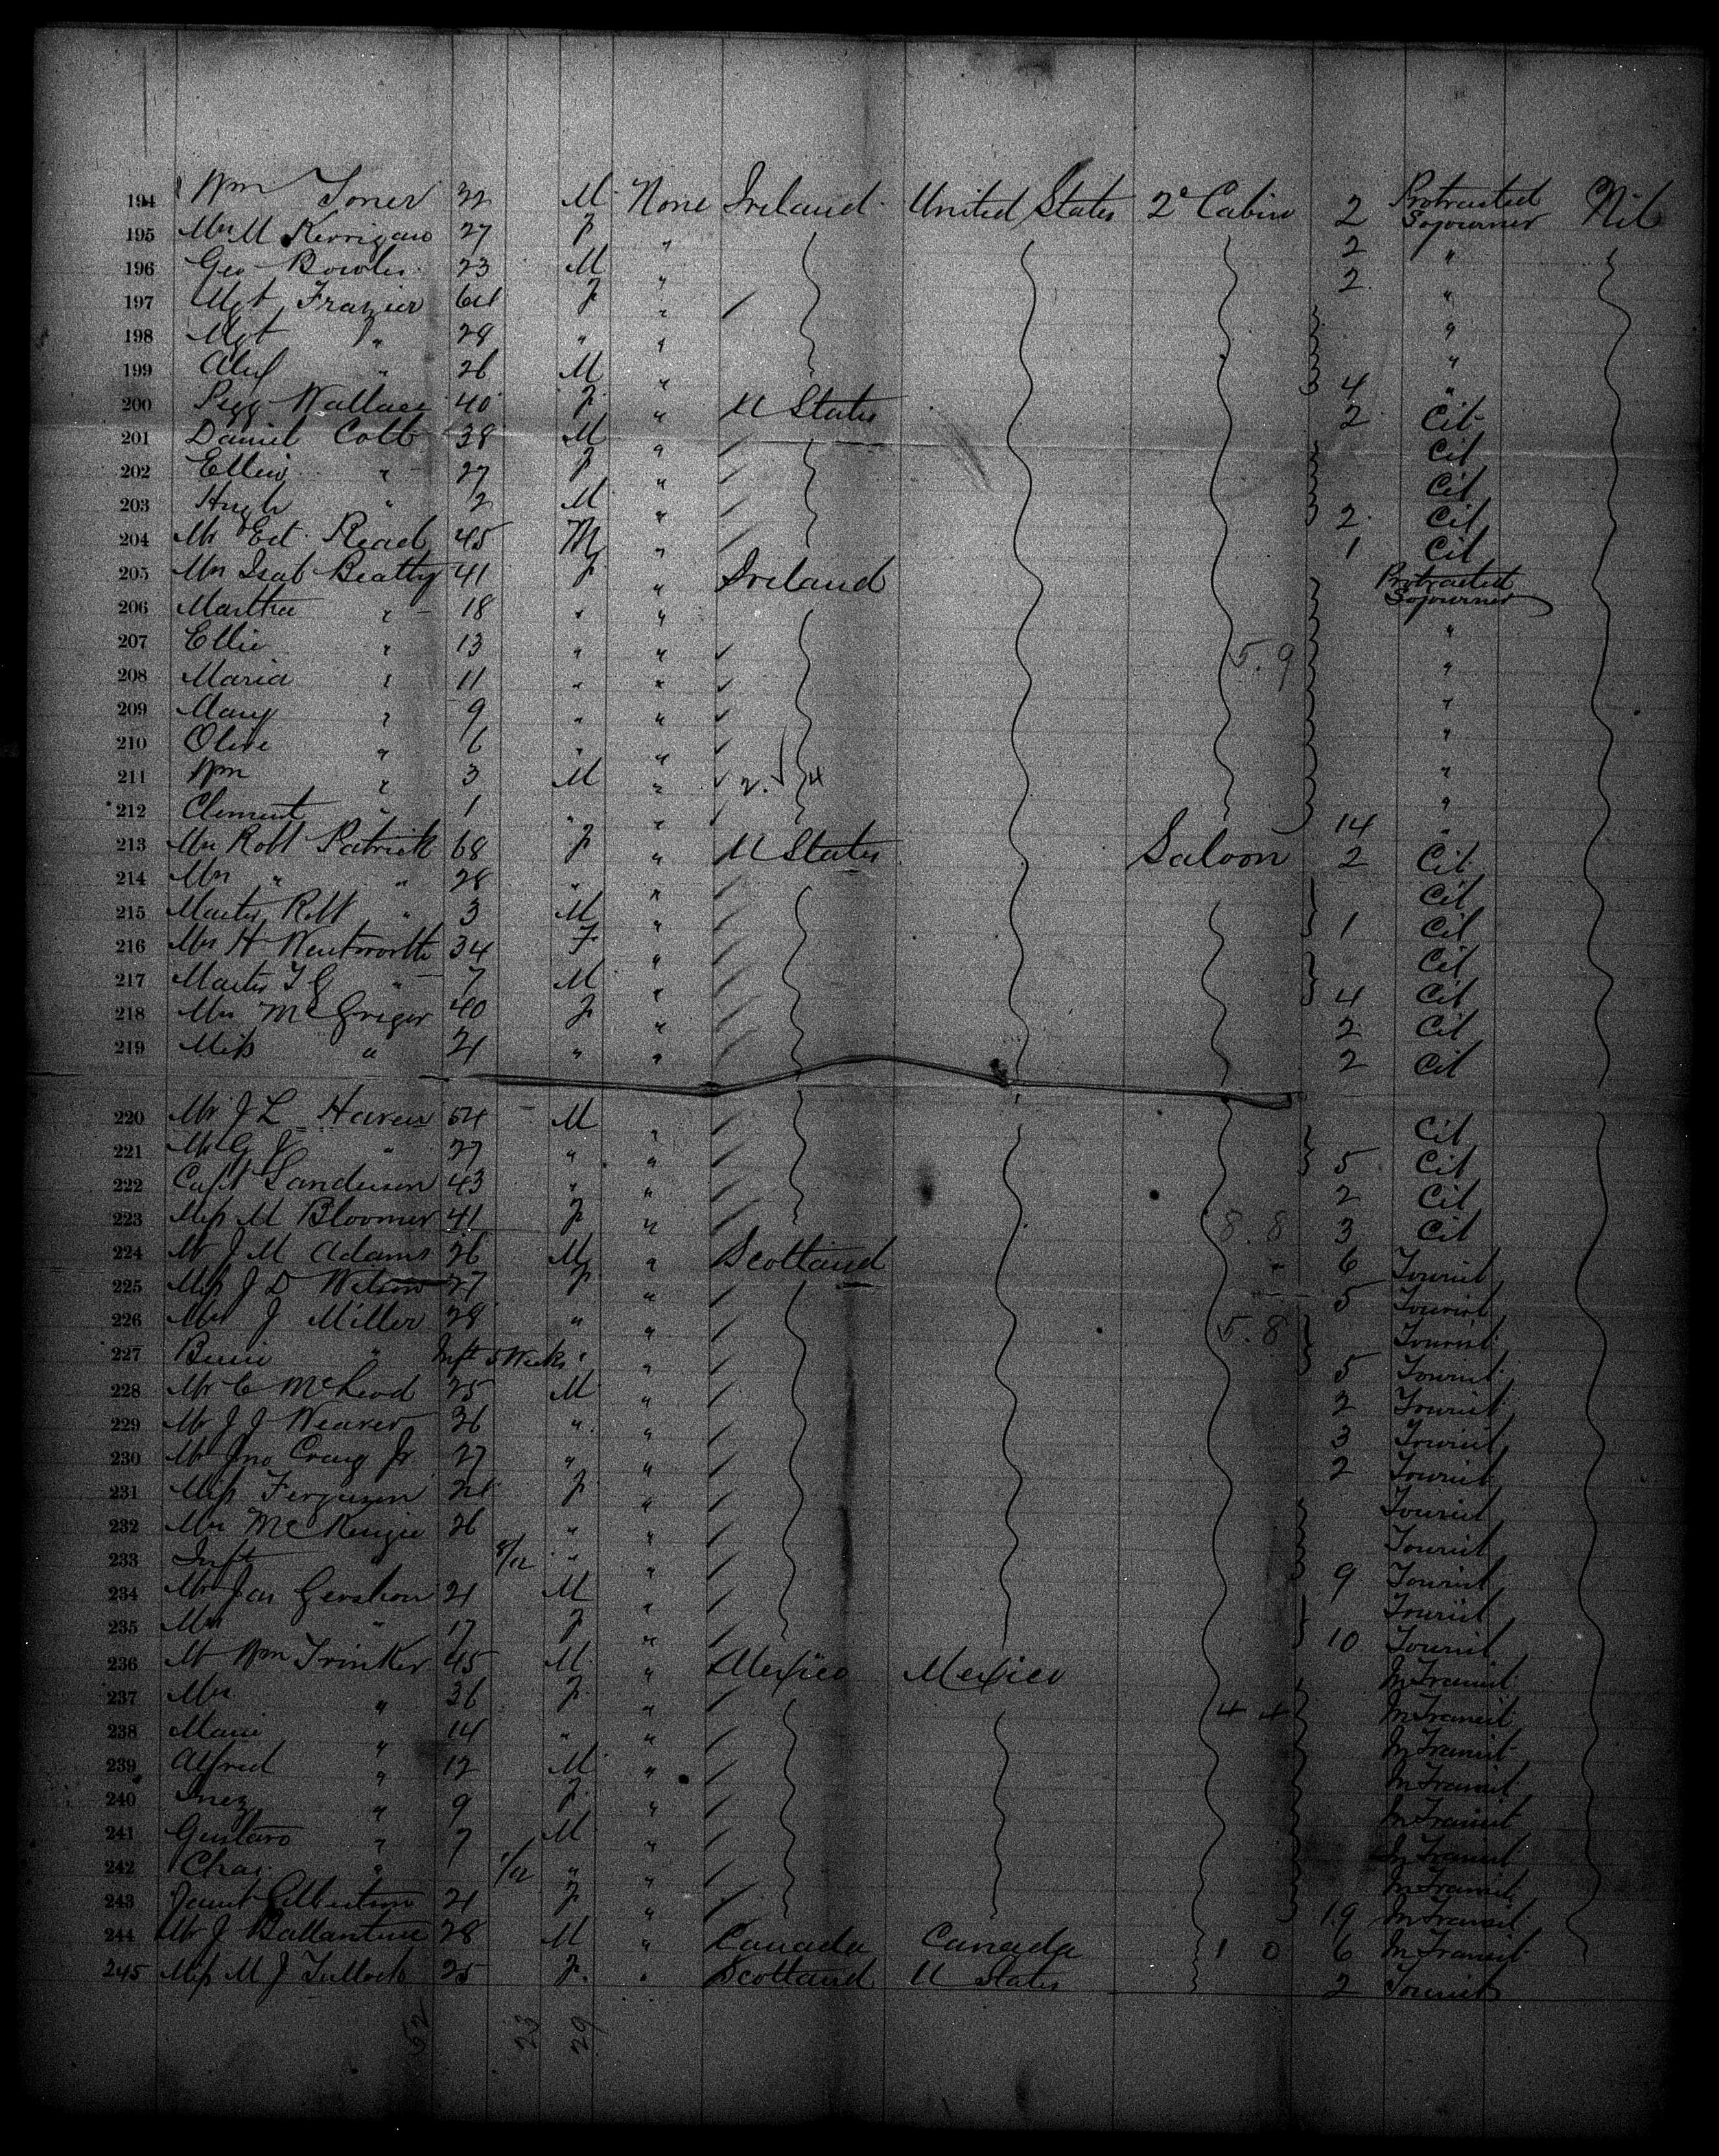 194 Wm Toner 32 M None Ireland United States 2d Cabin 2 Protracted Sojourner Nil
195 Mrs M Kerrigan 27 F " 2 "
196 Geo Bowler 23 M " 2 "
197 Mgt Frazier 64 F " "
198 Mgt " 28 " " "
199 Alex " 26 M " 4 "
200 Pegg Wallace 40 F " U States 2 Cit
201 Daniel Cobb 38 M " Cit
202 Ellen " 27 F " Cit
203 Hugh " 2 M " 2 Cit
204 Mr Ed. Read 45 M " 1 Cit
205 Mrs Isab Beatty 41 F " Ireland Protracted Sojourner
206 Martha " 18 " " "
207 Ellie " 13 " " 5. 9 "
208 Maria " 11 " " "
209 Mary " 9 " " "
210 Olive " 6 " " "
211 Wm " 3 M " 2. 4 "
212 Clement " 1 " " 14 "
213 Mrs Robt Patrick 68 F " U States Saloon 2 Cit
214 Mrs " " 28 " " Cit
215 Master Robt " 3 M " 1 Cit
216 Mrs H Wentworth 34 F " Cit
217 Master T G " 7 M " 4 Cit
218 Mrs McGregor 40 F " 2 Cit
219 Miss " 21 " " 2 Cit
220 Mr J L Haven 54 M " Cit
221 Mr G J " 27 " " 5 Cit
222 Capt Sanderson 43 " " 2 Cit
223 Miss M Bloomer 41 F " 8. 8 3 Cit
224 Mr J M Adams 26 M " Scotland 6 Tourist
225 Miss J D Wilson 27 F " 5 Tourist
226 Mrs J Miller 28 " " 5. 8 Tourist
227 " Inft 5 Weeks " " 5 Tourist
228 Mr C McLeod 25 M " 2 Tourist
229 Mr J J Weaver 36 " " 3 Tourist
230 Mr Jno Craig Jr 27 " " 2 Tourist
231 Miss Ferguson 21 F " Tourist
232 Mrs McKenzie 26 " " Tourist
233 Inft 8/12 " " 9 Tourist
234 Mr Jas 21 M " Tourist
235 Mrs " 17 F " 10 Tourist
236 Mr Wm Trinker 45 M " Mexico Mexico In Transit
237 Mrs " 36 F " 4 4 In Transit
238 Marie " 14 " " In Transit
239 Alfred " 12 M " In Transit
240 Inez " 9 F " In Transit
241 Gustavo " 7 M " In Transit
242 Chas " 1/12 " " In Transit
243 Janet Gilbertson 21 F " 19 In Transit
244 Mr J Ballantine 28 M " Canada Canada 1 0 6 In Transit
245 Miss M J Tullock 25 F " Scotland U States 2 Tourist
52 23 29